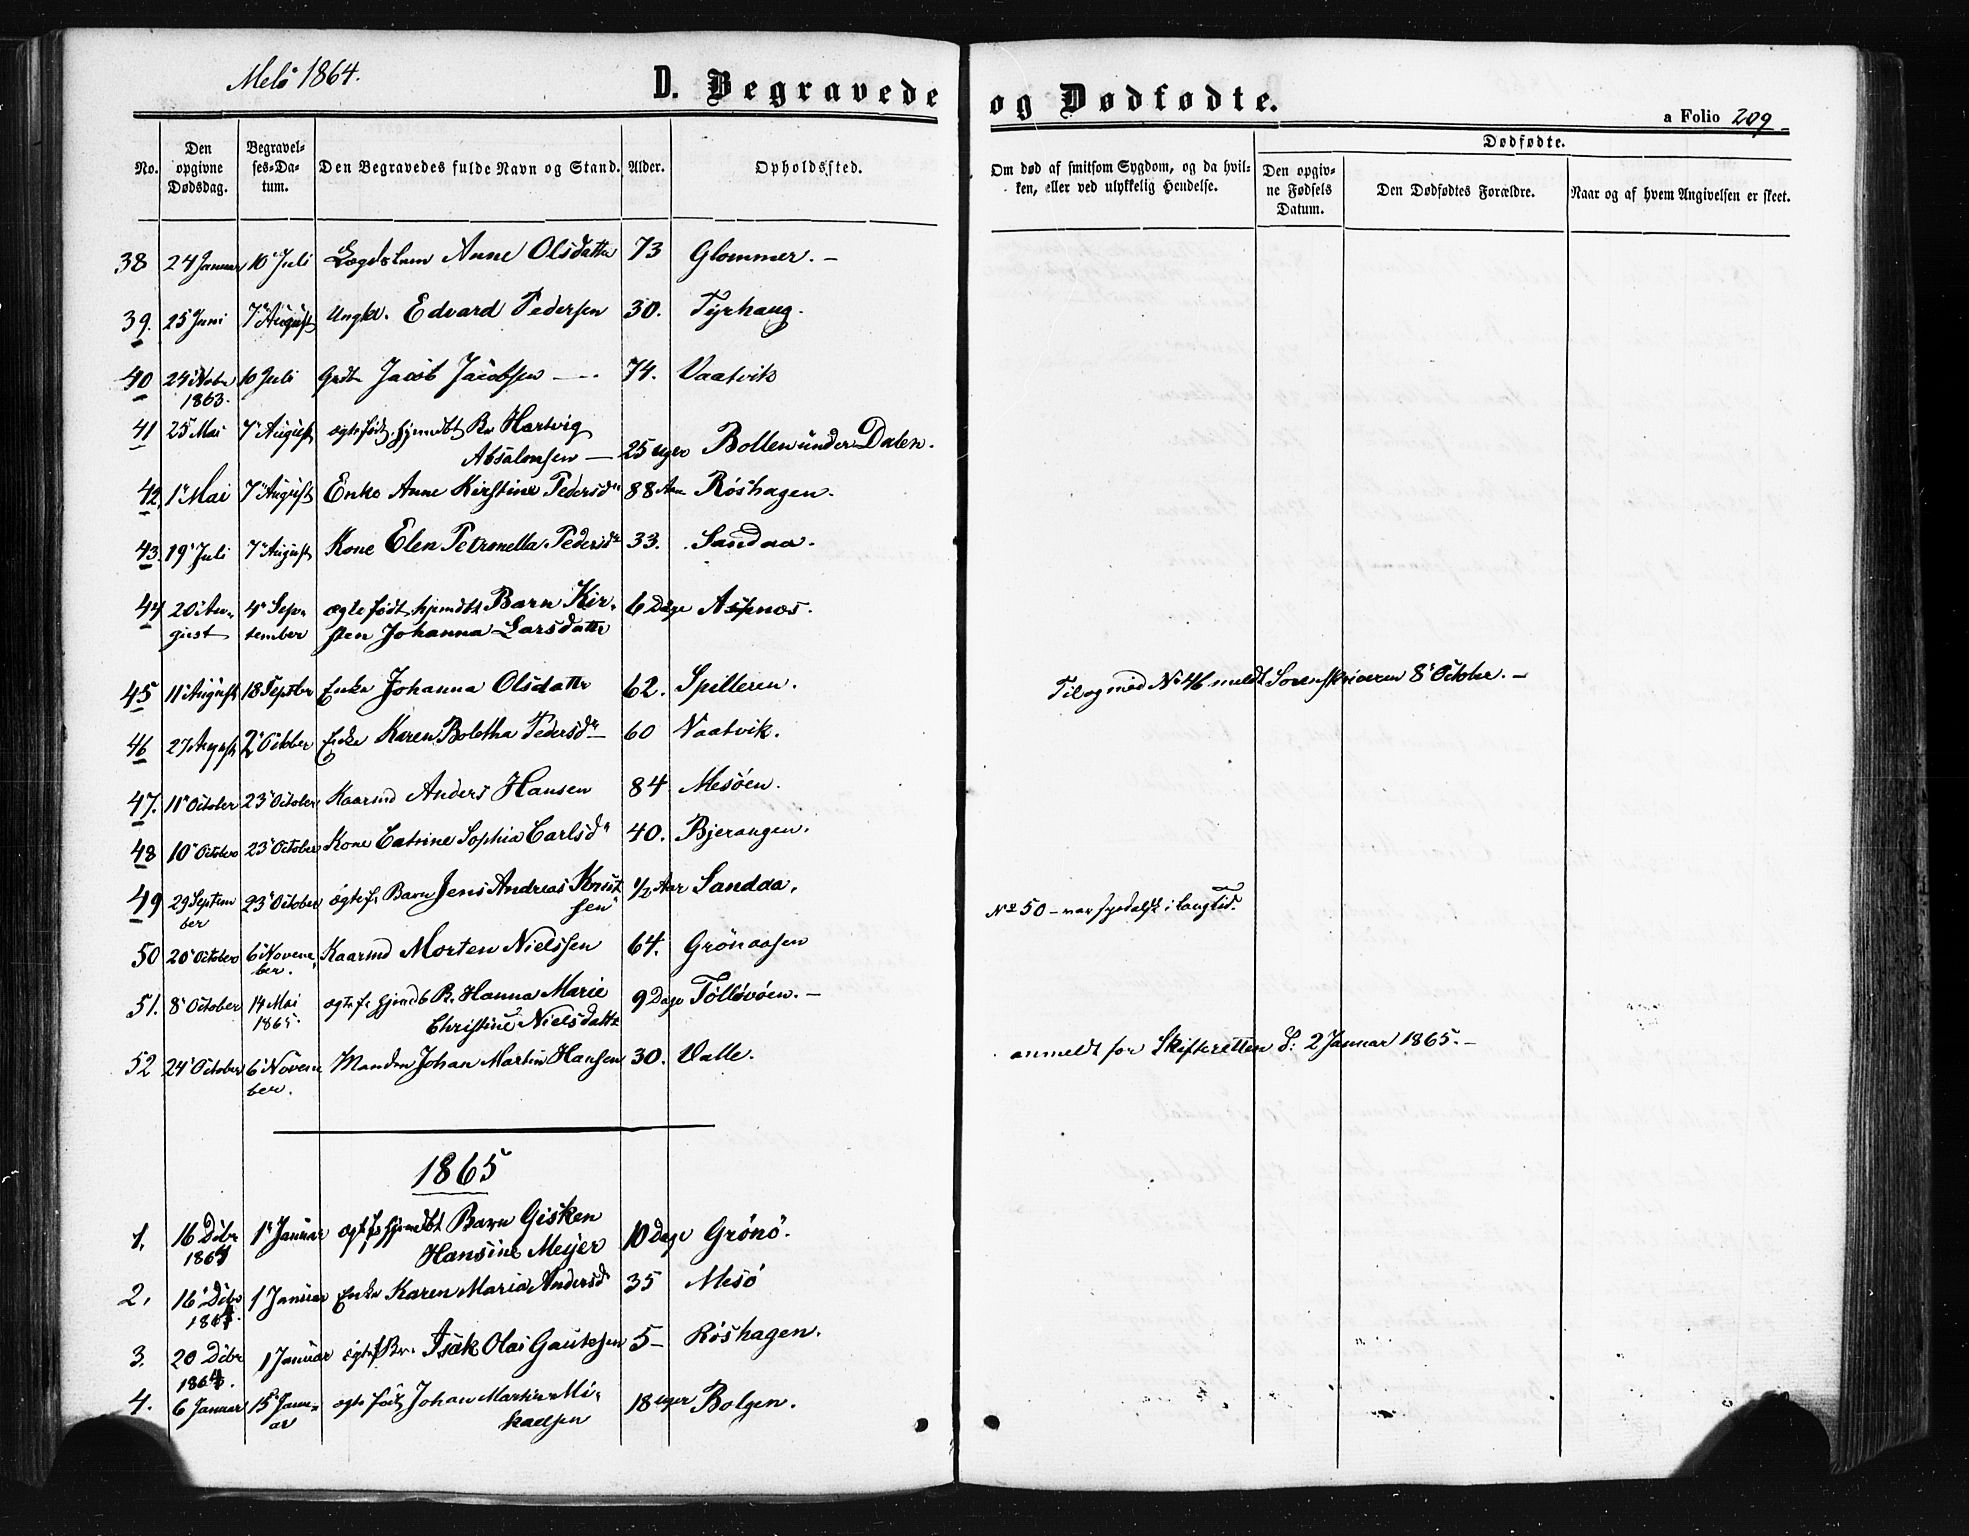 Melö 1864.
D. Begravede og Dødfødte.
a Folio 209
No. Den opgivne Dødsdag. Begravelses-Datum. Den Begravedes fulde Navn og Stand. Alder. Opholdssted. Om død af smitsom Sygdom, og da hvilken, eller ved ulykkelig Hendelse. Dødfødte. Den opgivne Fødsels Datum. Den Dødfødtes Forældre. Naar og af hvem Angivelsen er skeet.
38 24 Januar 10 Juli Lægdslem Anne Olsdatter 73 Glommer. -
39. 25 Juni 7 August Ungkl. Edvard Pedersen 30. Tyrhaug.
40 24 Nobr 1863. 10 Juli Jacob Jacobsen - 74. Vaatvik
41 25 Mai 7 August ægte født hjemdbt Br Hartvig
Absalonsen - 25 Uger Bollen under Dalen.
42. 1 Mai 7 August Enke Anne Kirstine Pedersdr 88 Aar Röshagen.
43. 19 Juli 7 August Kone Elen Petronella Pedersdr 33. Sandaa.
44 20 Au- 4 Sep- ægte født hjemdbt Barn Kir- 6 Dage Aspnæs.
gust tember sten Johanna Larsdatter
45 11 August 18 Septbr Enke Johanna Olsdatter 62. Spilleren. Tilogmed No 46 meldt Sorenskriveren 8 Octobr. -
46 27 August 2 October Enke Karen Boletha Pedersdr - 60 Vaatvik.
47. 11 October 23 October Kaarmd Anders Hansen 84 Mesöen.
48 10 October 23 October Kone Catrine Sophia Carlsdr 40. Bjerangen.
49 29 Septem 23 October ægte f. Barn Jens Andreas Knut 1/2 Aar Sandaa.
ber sen
No 50 - var spedalsk i lang Tid.
50 20 October 6 Novem- Kaarmd Morten Nielssen 64. Grönaasen
ber.
51. 8 October 14 Mai ægte f. hjemdb B. Hanna Marie 9 Dage Töllövöen. -
1865. Christine Nielsdattr
52 24 October 6 Novem Manden Johan Martin Hansen 30. Valle. anmeldt for Skifteretten d: 2 Januar 1865. -
ber.
1865
1. 16 Dcbr 1 Januar ægte f. hjemdbt Barn Gisken 10 Dage Grönö.
1864 Hansine Meyer
2. 16 Dcbr 1 Januar Enke Karen Maria Andersd 35 Mesö
1864.
3. 20 Dcbr 1 Januar ægte f Br. Isak Olai Gautesen 5 - Röshagen.
1864.
4. 6 Januar 15 Janu- ægte født Johan Martin Mi- 18 Uger Bolgen.
ar kaelsen